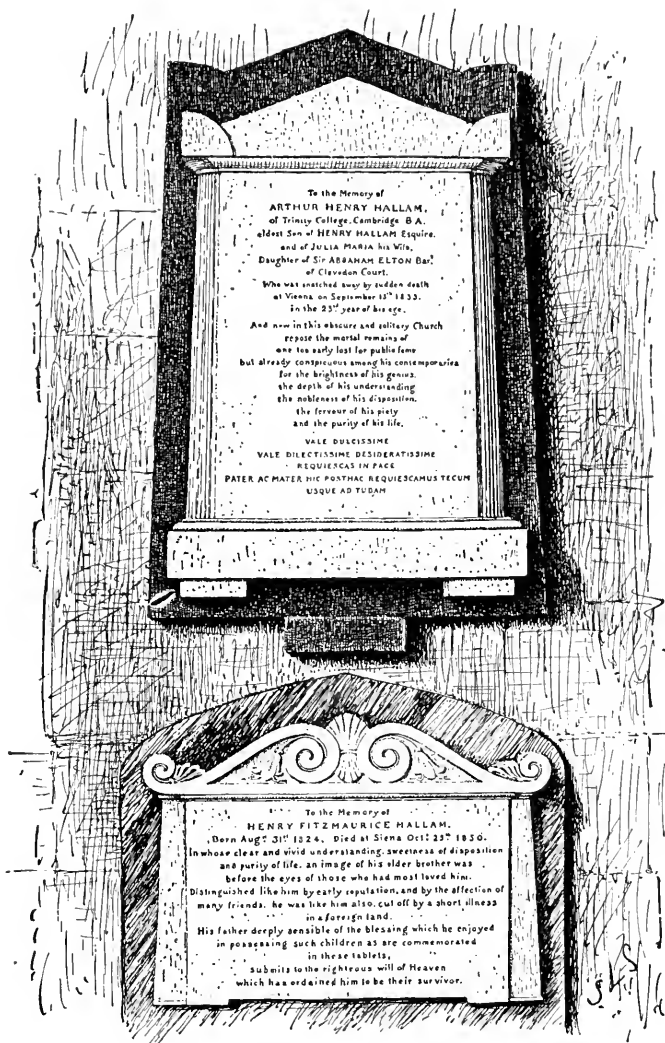 To the Memory of
ARTHUR HENRY HALLAM,
of Trinity College, Cambridge B A.
eldest Son of HENRY HALLAM Esquire.
and of JULIA MARIA his Wife,
Daughter of Sir ABRAHAM ELTON Bart.
of Clevedon Court.
Who was snatched away by sudden death
at Vienna on September 15th 1833.
in the 23rd year of his age.
And now in this obscure and solitary Church
repose the mortal remains of
one too early lost for public fame
but already conspicuous among his contemporaries
for the brightness of his genius,
the depth of his understanding
the nobleness of his disposition,
the fervour of his piety
and the purity of his life,
VALE DULCISSIME
VALE DILECTISSIME DESIDERATISSIME
REQUIESCAS IN PACE
PATER AC MATER HIC POSTHAC REQUIESCAMUS TECUM
USQUE AD TUBAM
To the Memory of
HENRY FITZMAURICE HALLAM.
Born Augt. 31st 1824. Died at Siena Oct: 25th 1850.
In whose clear and vivid understanding, sweetness of disposition
and purity of life, an image of his older brother was
before the eyes of those who had most loved him.
Distinguished like him by early reputation, and by the affection of
many friends, he was like him also, cut off by a short illness
in a foreign land.
His father deeply sensible of the blessing which he enjoyed
in possessing such children as are commemorated
in these tablets,
submits to the righteous will of Heaven
which has ordained him to be their survivor.